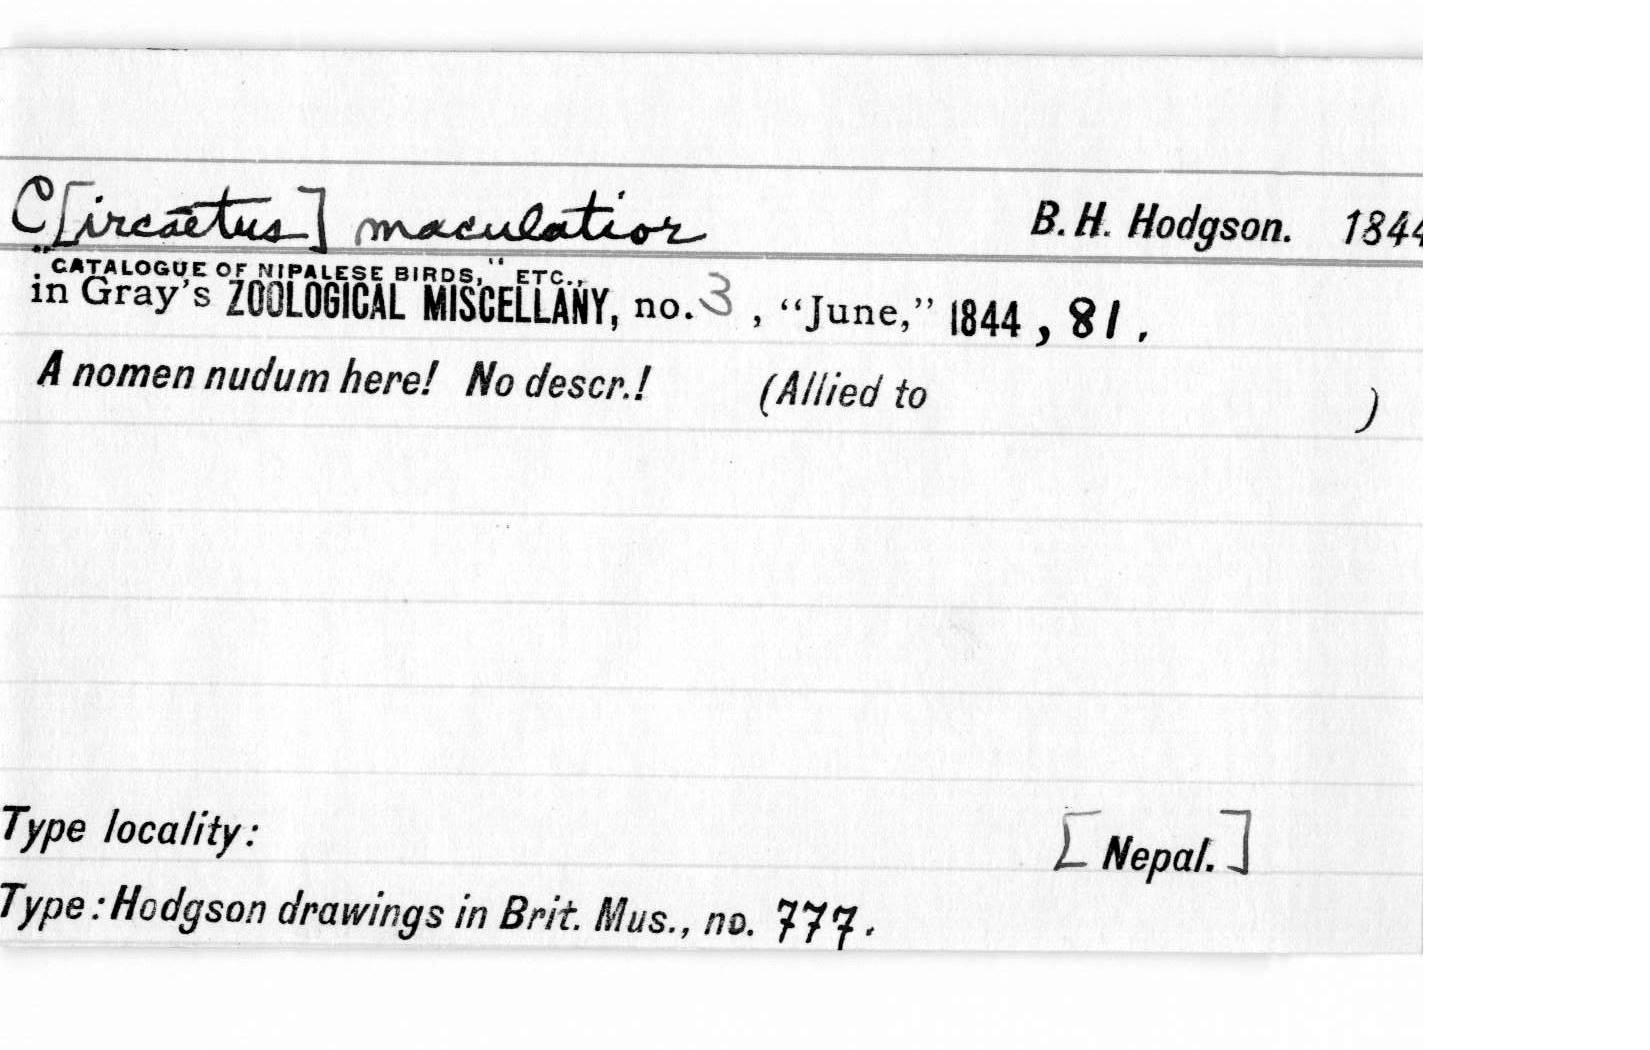 C[ircaëtus] maculatior B. H. Hodgson. 1844
"CATALOGUE OF NIPALESE BIRDS," ETC.,
in Gray's ZOOLOGICAL MISCELLANY, no. 3, "June," 1844, 81.
A nomen nudum here! No descr.! (Allied to )
Type locality: [Nepal.]
Type: Hodgson drawings in Brit. Mus., no. 777.